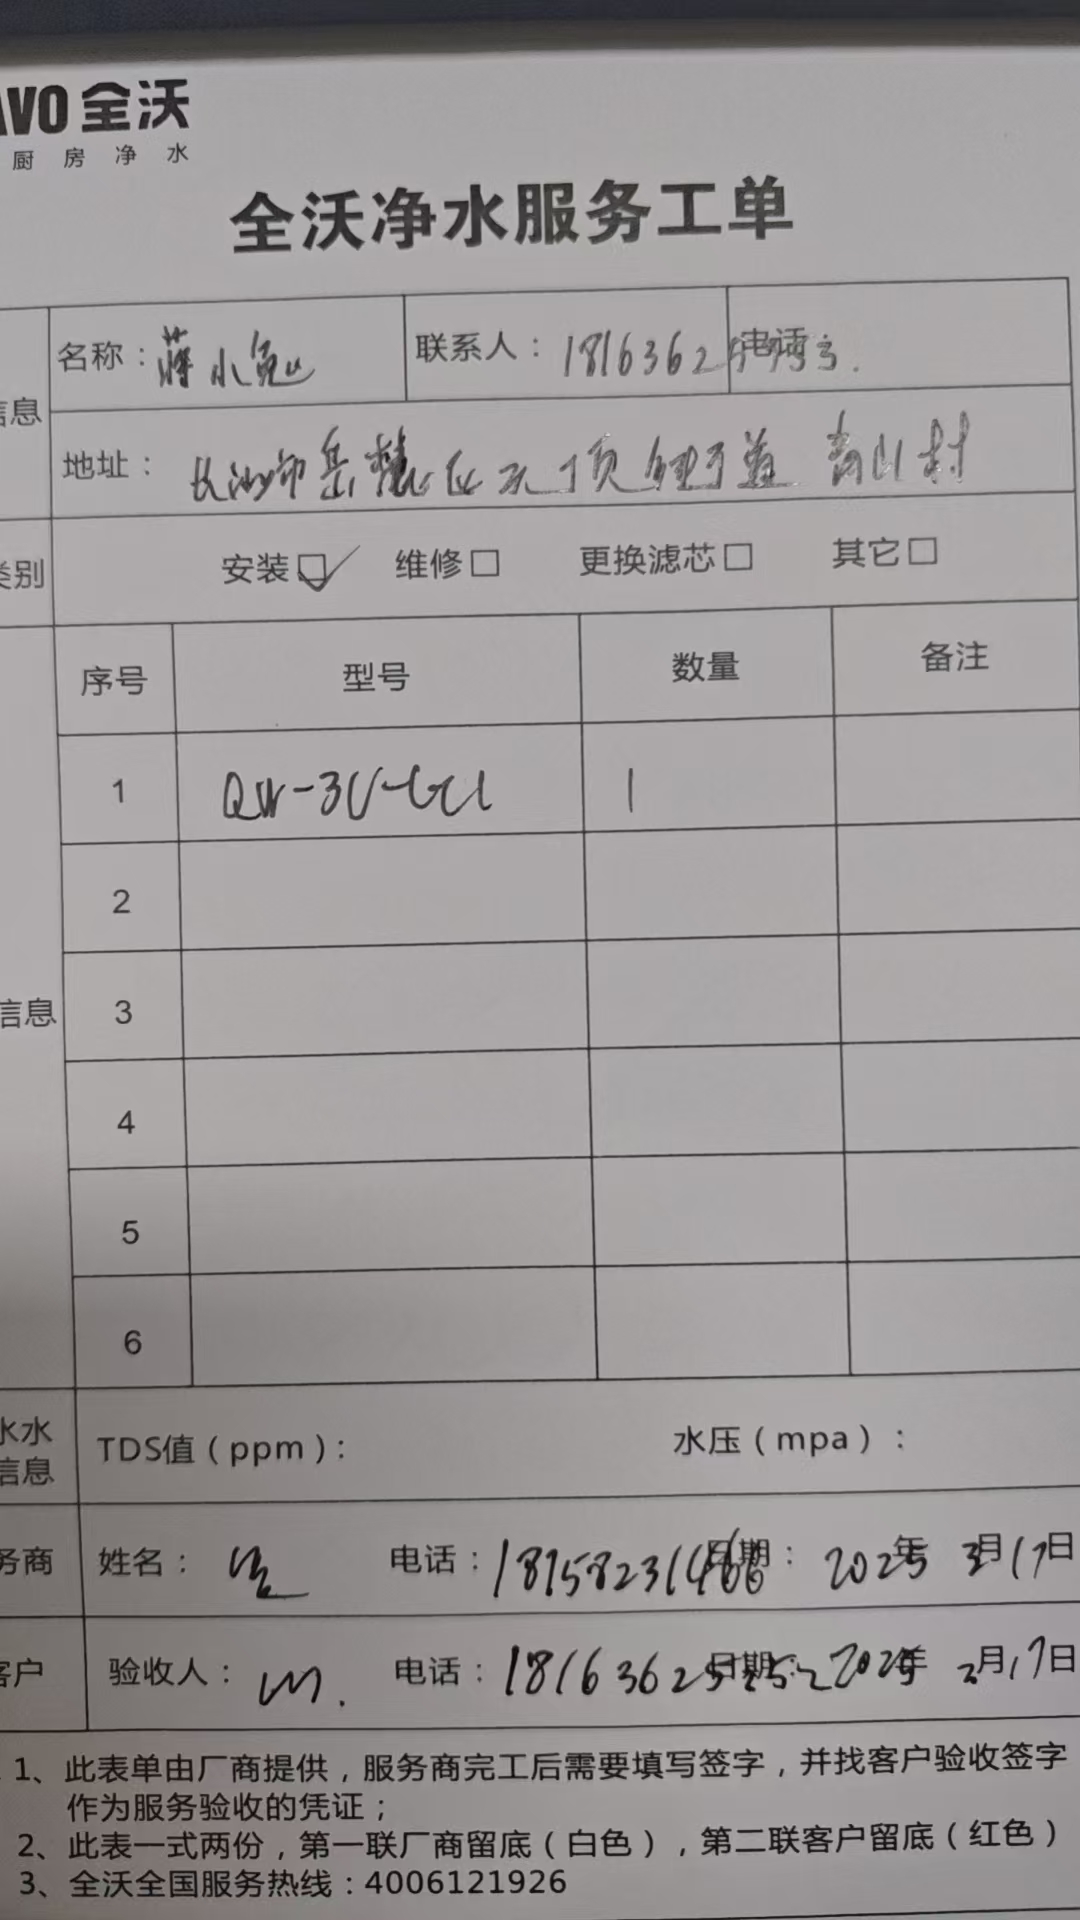 AVO 全沃
厨房净水
全沃净水服务工单
信息
名称：蒋小兔 联系人：1816362 电话：
地址：长沙市岳麓区 村
类别
安装☑ 维修□ 更换滤芯□ 其它□
序号 型号 数量 备注
1 QW-3 1
2
3
信息
4
5
6
水水
信息
TDS值（ppm）： 水压（mpa）：
务商 姓名： 电话： 日期：2025年3月17日
客户 验收人： 电话： 日期：2025年 月17日
1、此表单由厂商提供，服务商完工后需要填写签字，并找客户验收签字
作为服务验收的凭证；
2、此表一式两份，第一联厂商留底（白色），第二联客户留底（红色）
3、全沃全国服务热线：4006121926